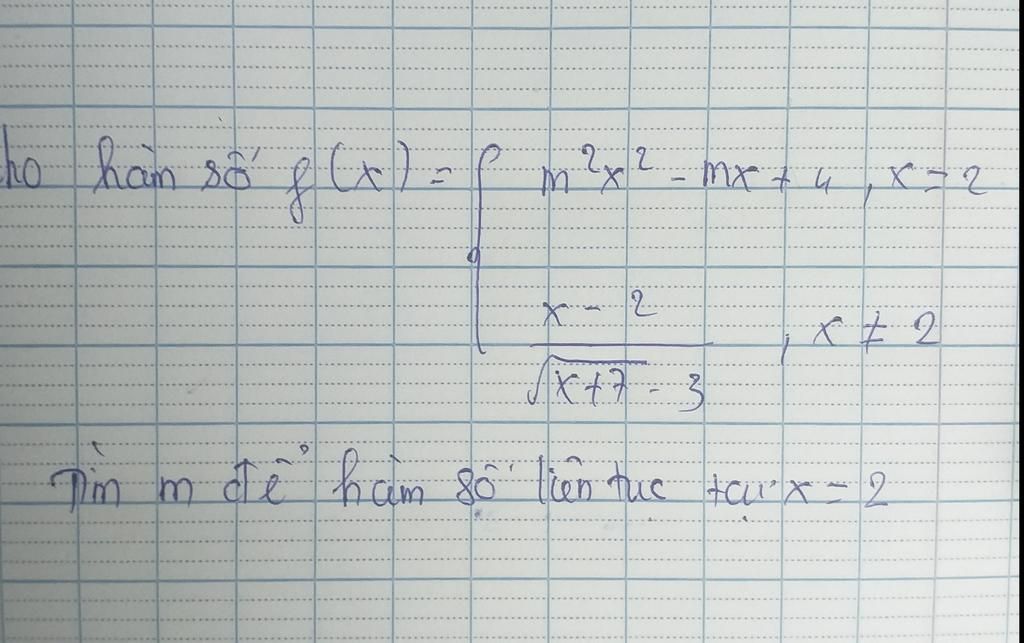 ho hàm số f(x) = { m²x² - mx + 4 , x = 2
x - 2 / √(x+7) - 3 , x ≠ 2
Tìm m để hàm số liên tục tại x = 2